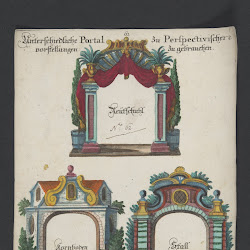 Unterschiedliche Portal zu Perspectivischer:
vorstellungen zu gebrauchen
Reutschuhl
N.º 82
Kornboden
Stall